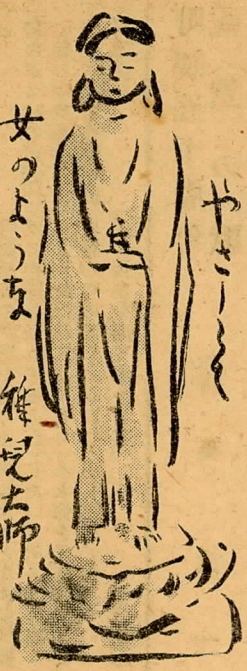 やさしくて
女のような
稚兒大師